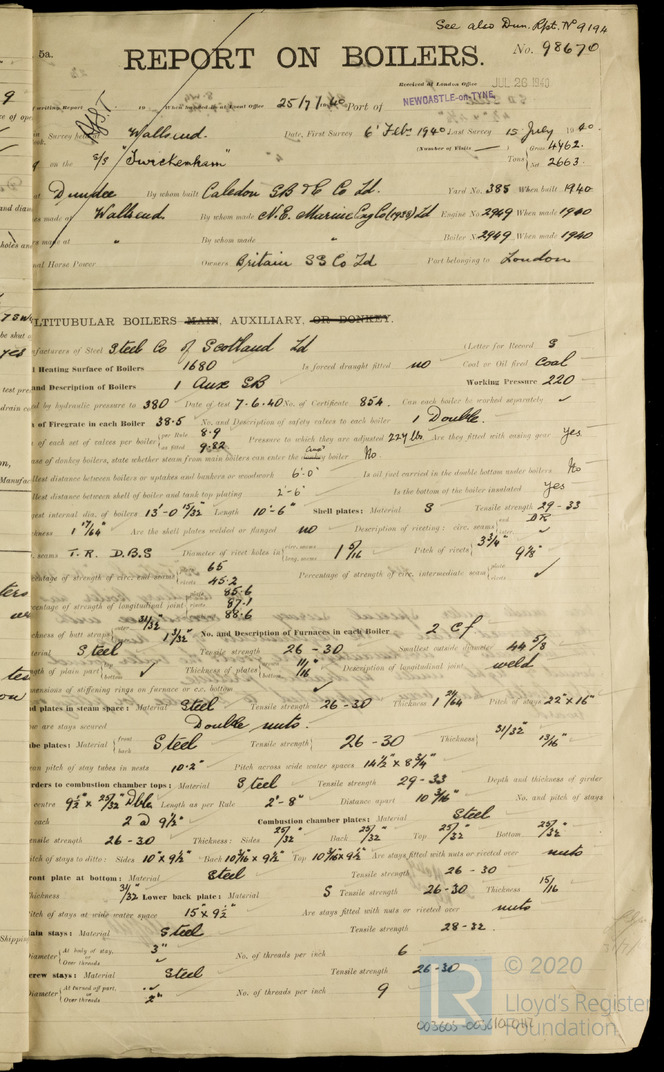 See also Dun. Rpt. No 9194
5a. REPORT ON BOILERS. No. 98670
Received at London Office JUL 26 1940
writing Report When handed in at Local Office 25/7/1940 Port of NEWCASTLE-on-TYNE
Survey held Wallsend. Date, First Survey 6 Feb 1940 Last Survey 15 July 1940
(Number of Visits —)
on the S/S "Twickenham" Tons Gross 4762. Net 2663.
at Dundee By whom built Caledon SB & E Co Ld. Yard No. 388 When built 1940
made at Wallsend By whom made N.E. Marine Eng Co (1938) Ld Engine No. 2949 When made 1940
made at " By whom made " Boiler No. 2949 When made 1940
Horse Power Owners Britain SS Co Ld Port belonging to London
LTITUBULAR BOILERS MAIN, AUXILIARY, OR DONKEY.
ufacturers of Steel Steel Co of Scotland Ld (Letter for Record S
Heating Surface of Boilers 1680 Is forced draught fitted no Coal or Oil fired Coal
and Description of Boilers 1 Aux SB Working Pressure 220
ed by hydraulic pressure to 380 Date of test 7.6.40 No. of Certificate 854. Can each boiler be worked separately ✓
of Firegrate in each Boiler 38.5 No. and Description of safety valves to each boiler 1 Double.
of each set of valves per boiler per Rule 8.9 as fitted 9.82 Pressure to which they are adjusted 224 lbs Are they fitted with easing gear yes
ase of donkey boilers, state whether steam from main boilers can enter the donkey boiler No
llest distance between boilers or uptakes and bunkers or woodwork 6'-0" Is oil fuel carried in the double bottom under boilers No
llest distance between shell of boiler and tank top plating 2'-6" Is the bottom of the boiler insulated yes
gest internal dia. of boilers 13'-0 15/32" Length 10'-6" Shell plates: Material S Tensile strength 29-33
ckness 1 17/64" Are the shell plates welded or flanged no Description of riveting: circ. seams end DR
seams T.R. D.B.S Diameter of rivet holes in circ. seams long. seams 1 5/16 Pitch of rivets 3 3/4" 9 1/8"
centage of strength of circ. end seams plate 65 rivets 45.2 Percentage of strength of circ. intermediate seam plate rivets ✓
centage of strength of longitudinal joint 85.6 87.1 88.6
ckness of butt straps outer 31/32" inner 1 3/32" No. and Description of Furnaces in each Boiler 2 cf
Steel Tensile strength 26-30 Smallest outside diameter 44 5/8
gth of plain part top bottom ✓ Thickness of plates 11/16" Description of longitudinal joint weld
mensions of stiffening rings on furnace or c.c. bottom ✓
d plates in steam space: Material Steel Tensile strength 26-30 Thickness 1 24/64 Pitch of stays 22" x 16"
ow are stays secured Double nuts.
be plates: Material front back Steel Tensile strength 26-30 Thickness 31/32" 13/16"
an pitch of stay tubes in nests 10.2" Pitch across wide water spaces 14 1/2" x 8 3/4"
rders to combustion chamber tops: Material Steel Tensile strength 29-33 Depth and thickness of girder
centre 9 1/2" x 25/32" Dble Length as per Rule 2'-8" Distance apart 10 3/16" No. and pitch of stays
each 2 @ 9 1/2" Combustion chamber plates: Material Steel
nsile strength 26-30 Thickness: Sides 25/32" Back 25/32" Top 25/32" Bottom 25/32"
tch of stays to ditto: Sides 10" x 9 1/2" Back 10 3/16" x 9 1/2" Top 10 3/16" x 9 1/2" Are stays fitted with nuts or riveted over nuts
ront plate at bottom: Material Steel Tensile strength 26-30
hickness 31/32 Lower back plate: Material S Tensile strength 26-30 Thickness 15/16
itch of stays at wide water space 15" x 9 1/2" Are stays fitted with nuts or riveted over nuts
ain stays: Material Steel Tensile strength 28-32.
iameter At body of stay, or Over threads 3" No. of threads per inch 6
crew stays: Material Steel Tensile strength 26-30
iameter At turned off part, or Over threads 2" No. of threads per inch 9
© 2020
Lloyd's Register
Foundation